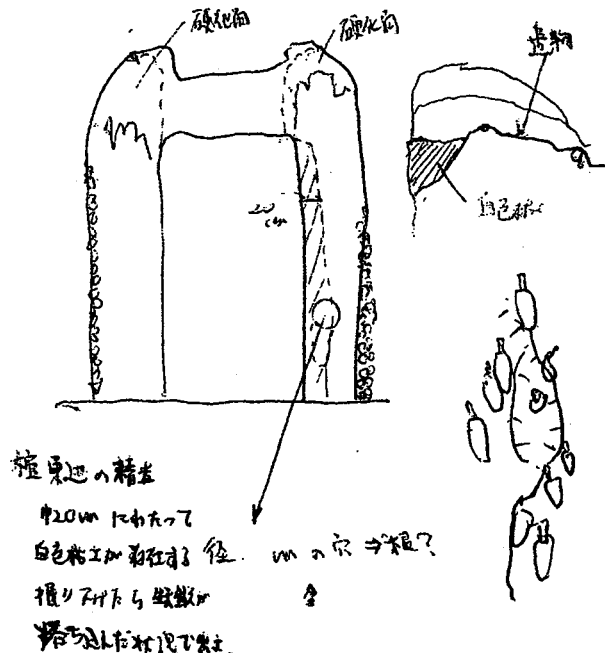 硬化面
硬化面
遺物
白色粘土
20cm
東辺の精査
巾20cmにわたって
白色粘土が存在する 径 cmの穴⇒根?
掘り下げたら鉄鏃が
落ち込んだ状況で出土